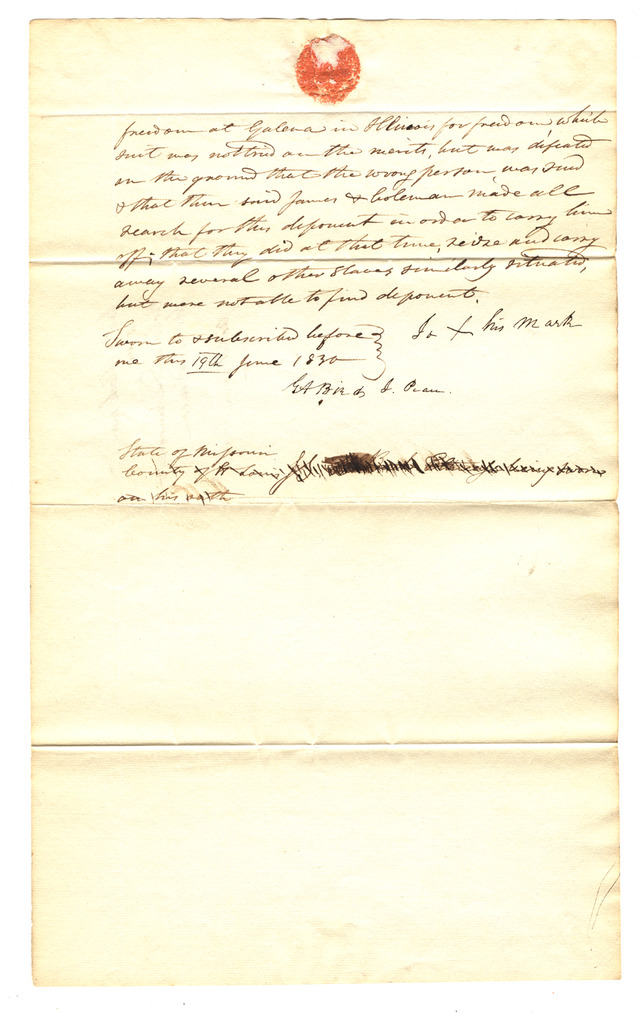 freedom at Galena in Illinois for freedom, which
suit was not tried on the merits, but was defeated
on the ground that the wrong person, was sued
& that then said James & Coleman made all
search for this deponent in order to carry him
off; that they did at that time, seize and carry
away several other Slaves similarly situated,
but were not able to find deponent.
Sworn to & subscribed before } Jo X his Mark
me this 19th June 1830
G A Bird J. Peace.
State of Missouri
County of St Louis
on his oath